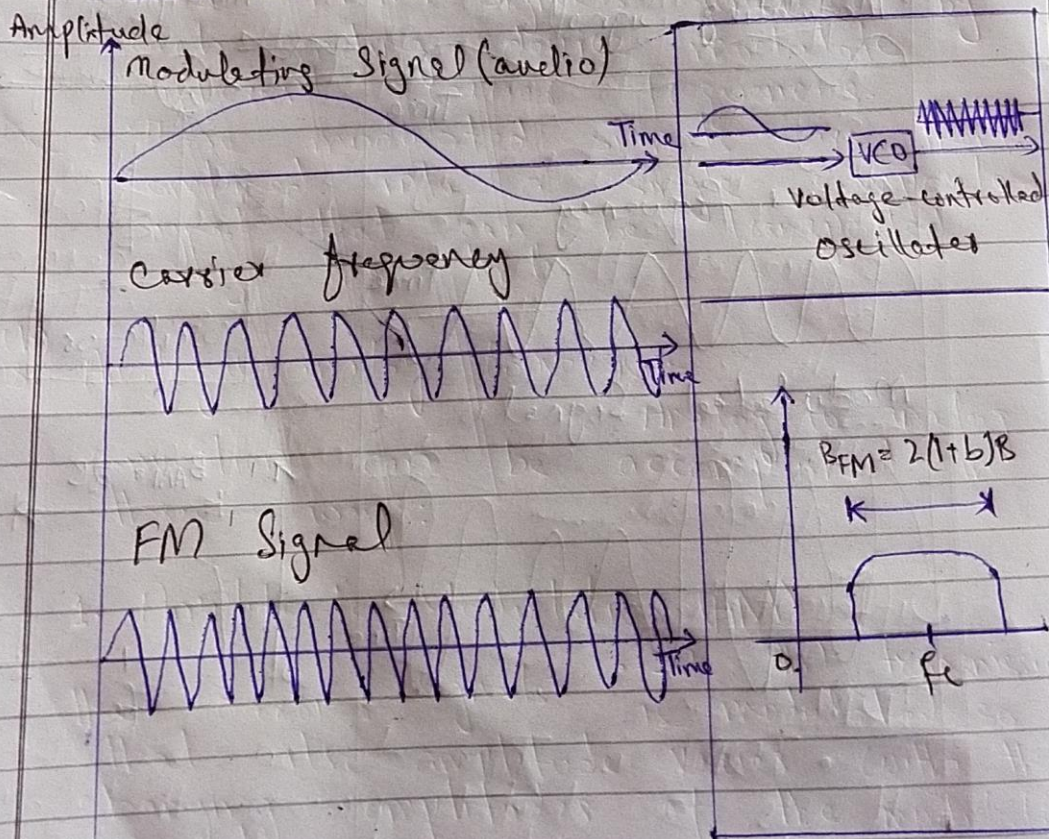 Amplitude
Modulating Signal (audio)
Time
VCO
Voltage-controlled
oscillator
Carrier frequency
Time
BFM = 2(1+b)B
FM Signal
Time
0
fc